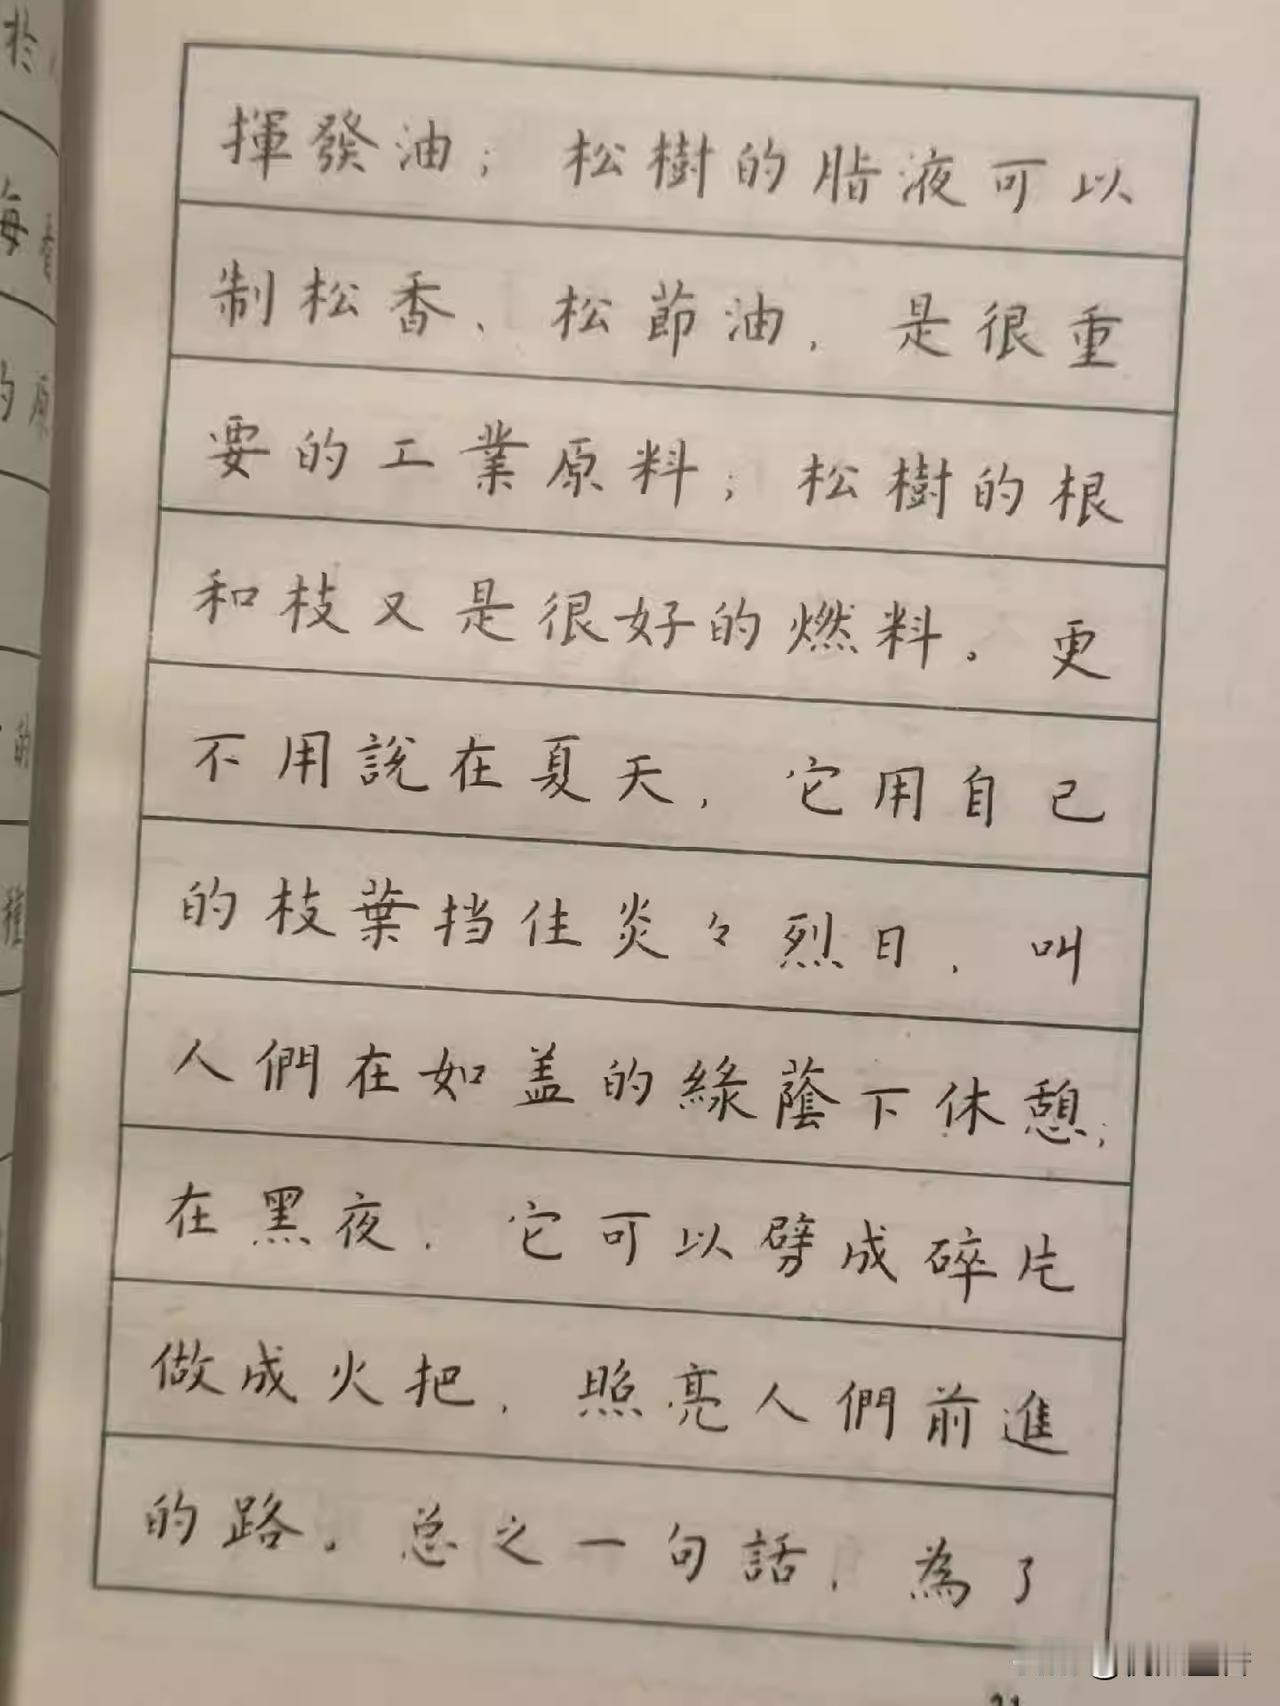 揮發油；松樹的脂液可以
制松香、松節油，是很重
要的工業原料；松樹的根
和枝又是很好的燃料。更
不用說在夏天，它用自己
的枝葉挡住炎々烈日，叫
人們在如盖的綠蔭下休憩；
在黑夜，它可以劈成碎片
做成火把，照亮人們前進
的路。总之一句話，為了